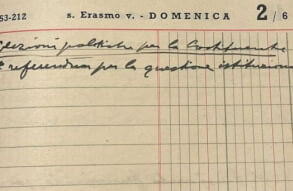 53-212 s. Erasmo v. - DOMENICA 2/6
elezioni politiche per la Costituente
e referendum per la questione istituzionale